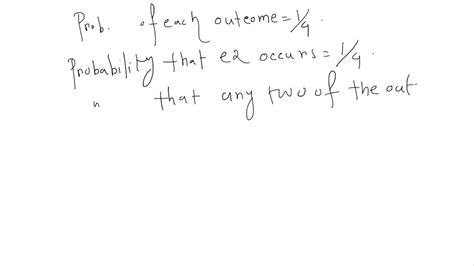 Prob. of each outcome = 1/4.
Probability that e2 occurs = 1/4.
" that any two of the out